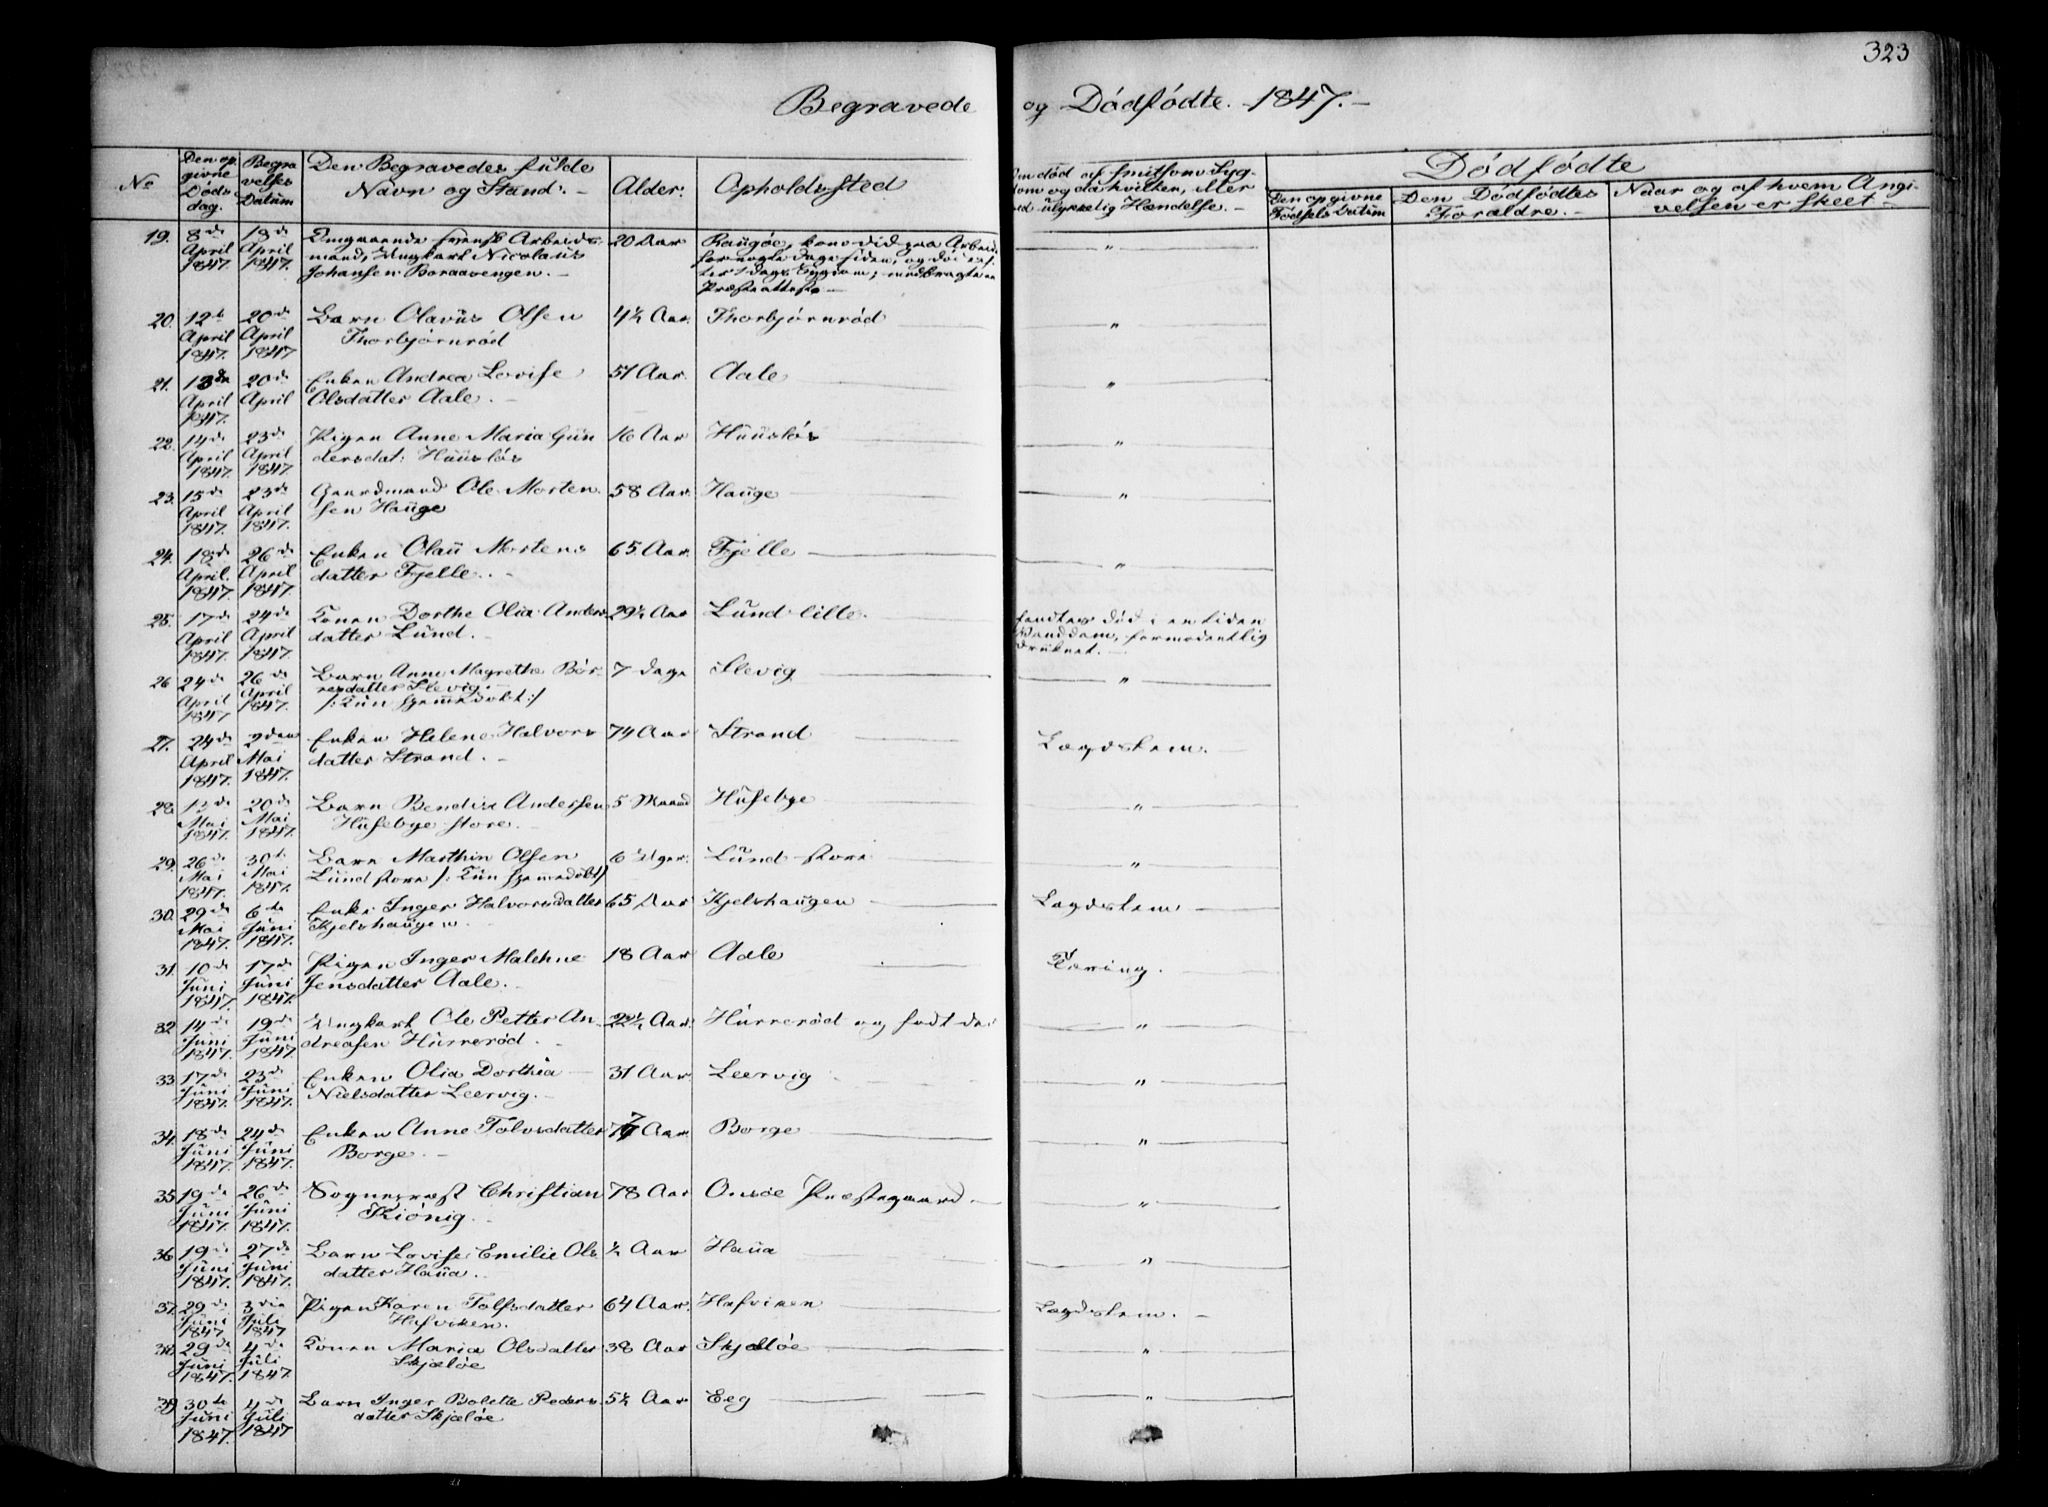 323
Begravede og Dødfødte 1847.
No
Den op
givne
Døds
dag.
Begra
velses
Datum
Den Begravedes fulde
Navn og Stand:
Alder:
Opholdssted
død af smitsom Syg-
dom og da hvilken, eller
ved ulykkelig Hændelse.
Dødfødte
Den opgivne
Fødsels Datum
Den Dødfødtes
Forældre.
Naar og af hvem Angi-
velsen er skeet
19. 8de April 1847. April 1847. Omgaaende svensk Arbeids-
mand, Ungkarl Nicolaus
Johansen 20 Aar
Raugøe, kom did paa Arbeide
for nogle Dage siden, og døde ef-
ter Dags Sygdom; medbragte en
Præsteattest
20. 12te April 1847. 20de April 1847 Barn Olavus Olsen
Thorbjørnrød 4½ Aar. Thorbjørnrød "
21. 13de April 1847. 20de April Enken Andrea Lovise
Olsdatter Aale. 51 Aar. Aale "
22. 14de April 1847. 23de April 1847. Pigen Anne Maria Gun
dersdat: Huusløs 16 Aar Huusløs "
23. 15de April 1847. 23de April 1847. Gaardmand Ole Morten
sen Hauge 58 Aar. Hauge "
24. 18de April. 1847. 26de April 1847. Enken Olau Mortens
datter Fjelle. 65 Aar. Fjelle "
25. 17de April 1847. 24de April 1847. Konen Dorthe Olia Anders
datter Lund. 29½ Aar Lund lille.
fandtes død i en liden
Vanddam, formodentlig
druknet.
26 24de April 1847 26de April 1847. Barn Anne Magrethe Bør-
resdatter Slevig
/: Kun hjemmedøbt :/ 7 Dage Slevig "
27. 24de April 1847. 2den Mai 1847. Enken Helene Halvors
datter Strand. 74 Aar Strand Lagdslem.
28. 12de Mai 1847. 20de Mai 1847. Barn Bendix Andersen
Husebye store. 5 Maaned Husebye "
29. 26de Mai 1847. 30te Mai 1847. Barn Marthin Olsen
Lund store /: Kun hjemmedøbt :/ 6 Uger. Lund store "
30. 29de Mai 1847. 6te Juni 1847. Enke Inger Halvorsdatter
Kjelshaugen 65 Aar Kjelshaugen Lagdslem
31. 10de Juni 1847. 17de Juni 1847. Pigen Inger Malehne
Jensdatter Aale. 18 Aar Aale Tæring.
32 14de Juni 1847. 19de Juni 1847 Ungkarl Ole Petter An-
dreasen Hurrerød. 22½ Aar. Hurrerød og født der "
33 17de Juni 1847. 23de Juni 1847. Enken Olia Dorthia
Nielsdatter Leervig. 31 Aar Leervig "
34. 18de Juni 1847. 24de Juni 1847. Enken Anne Tolvsdatter
Borge. 77 Aar Borge "
35 19de Juni 1847. 26de Juni 1847. Sognepræst Christian
Kiönig. 78 Aar Onsøe Præstegaard "
36 19de Juni 1847. 27de Juni 1847. Barn Lovise Emilie Ols
datter Haua. ½ Aar Haua "
37. 29de Juni 1847 3die Juli 1847 Pigen Karen Tolfsdatter
Hafviken. 64 Aar. Hafviken Lagdslem.
38. 29de Juni 1847. 4de Juli 1847 Konen Maria Olsdatter
Skjæløe 38 Aar Skjæløe "
39 30te Juni 1847. 4de Juli 1847 Barn Inger Bolette Peders
datter Skjæløe 5½ Aar Eeg "